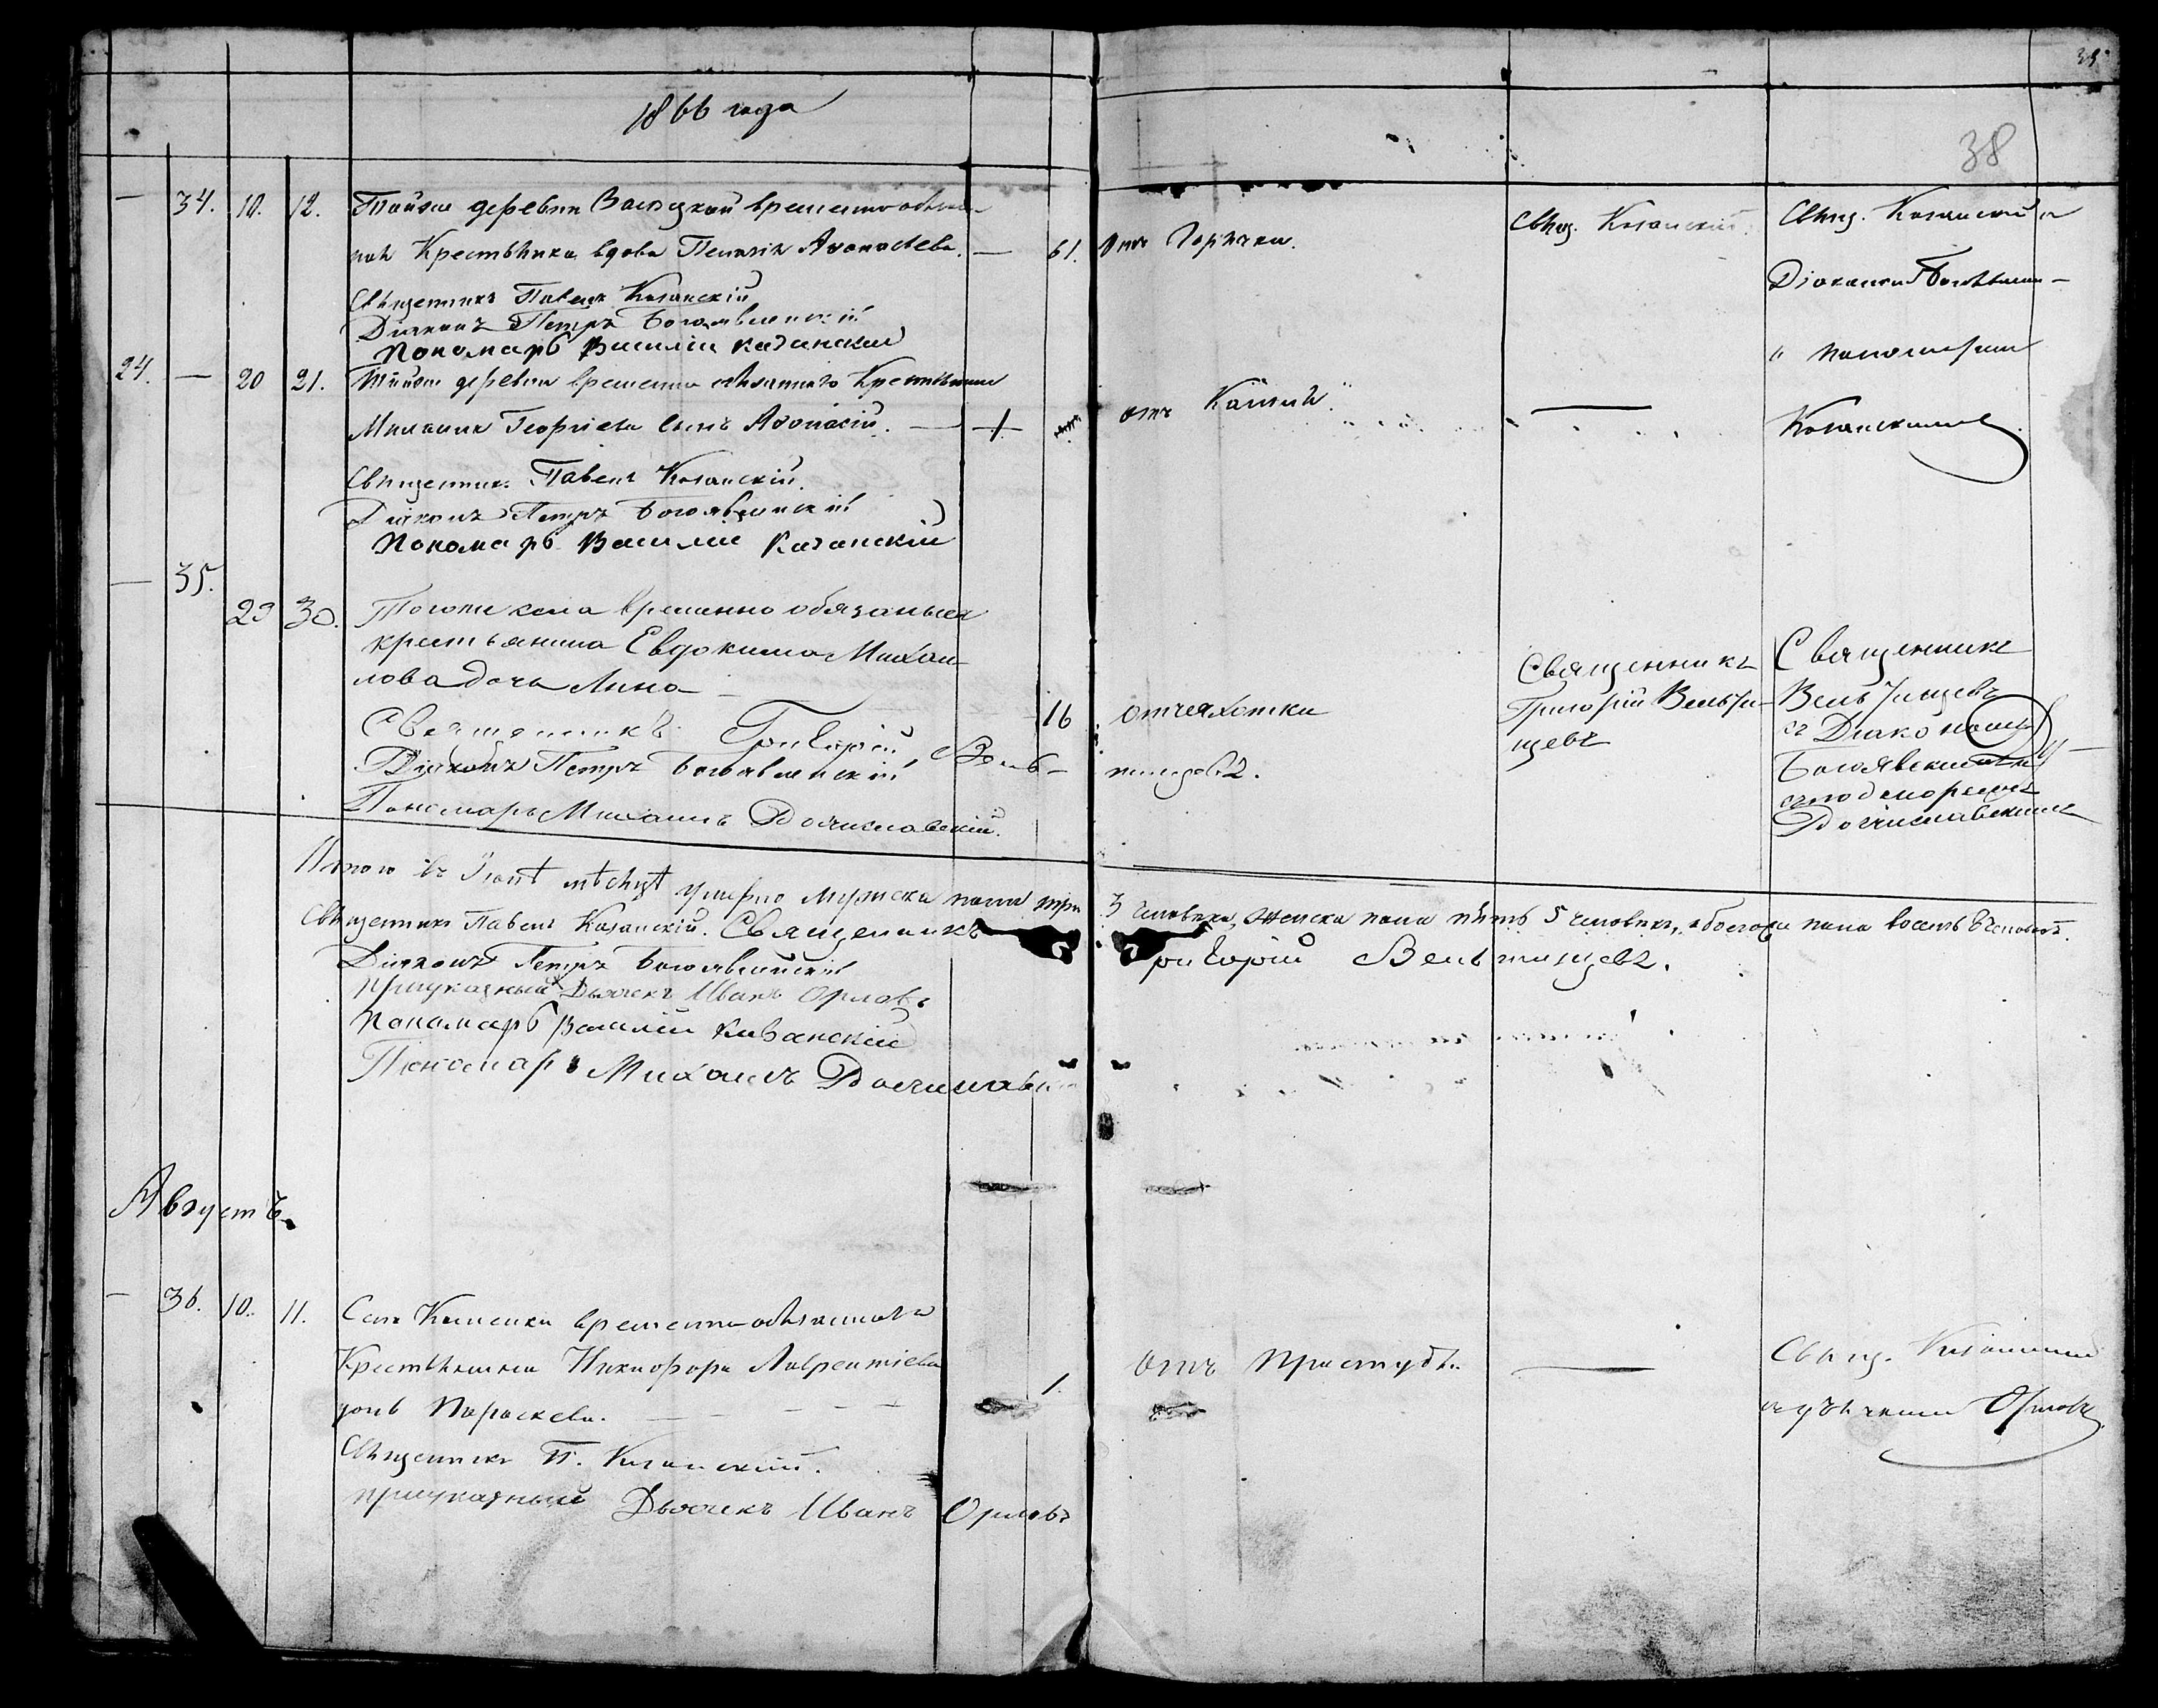 1866 года
38
— 34. 10. 12. Тойже деревни временно обяза-
Крестьянка вдова Пелагія Аѳонасьева. — 61. Отъ Горячки. Свящ. Казанскій. Свящ. Казанскій и
Священникъ Павелъ Казанскій
Діаконъ Петръ Богоявленскій
Пономарь Василій Казанскій
24. — 20 21. Тойже деревни временно обязаннаго Крестьянина
Михаила Георгіева сынъ Аѳонасій. — 1 отъ Кашлю. —
Казанскимъ
Священникъ Павелъ Казанскій.
Діаконъ Петръ Богоявленскій
Пономарь Василій Казанскій
— 35. 29 30. Тогоже села временно обязаныя
крестьянина Евдокима Михаи-
лова дочь Анна — 16 отчахотки
Священникъ
Григорій Вельти-
щевъ
Священникъ
Вельтищевъ
съ Діакономъ
Священникъ Григорій Вель-
тищевъ.
Діаконъ Петръ Богоявленскій
Пономарь Михаилъ
Итого въ Іюлѣ мѣсяцѣ умерло мужска пола три 3 человѣка, женска пола пять 5 человѣкъ, обоего пола восемь 8 человѣкъ.
Священникъ Павелъ Казанскій. Священникъ Григорій Вельтищевъ.
Діаконъ Петръ Богоявленскій
Приуказный Дьячекъ Иванъ Орловъ
Пономарь Василій Казанскій
Пономарь Михаилъ
Августъ.
— 36. 10. 11. Села Каменки временно-обязаннаго
Крестьянина Никифора Лаврентіева
дочь Параскева. — 1. Отъ Простуды. — Свящ. Казанскій
съ дьячкомъ Орловъ
Священникъ П. Казанскій.
Приуказный Дьячекъ Иванъ Орловъ